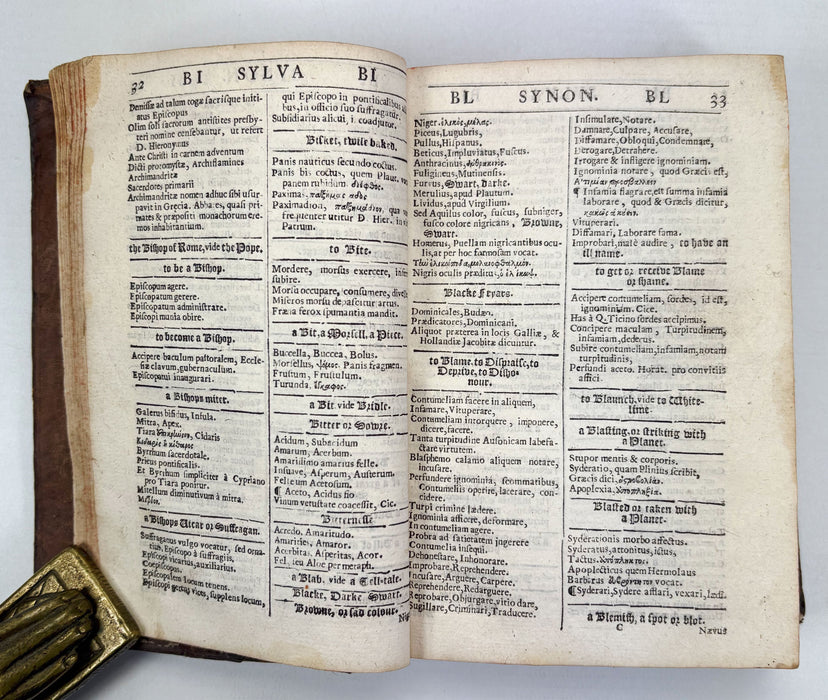 32
BI SYLVA BI
Demissæ ad talum togæ sacrisque initi-
atus Episcopus
Olim soli sacrorum antistites presby-
teri nomine censebantur, ut refert
D. Hieronynus
Ante Christi in carnem adventum
Dicti protomystæ, Archiflamines
Archimandritæ
Sacerdotes primarii
Archimandritæ nomen adhuc sibi usur-
pavit in Grecia. Abbates, quasi pri-
mates & præpositi monachorum ere-
mos inhabitantium.
the Bishop of Rome, vide the Pope.
to be a Bishop.
Episcopum agere.
Episcopatum gerere.
Episcopatum administrate.
Episcopi munia obire.
to become a Bishop.
Accipere baculum pastoralem, Eccle-
siæ clavum, gubernaculum.
Episcopatui inaugurari.
a Bishops miter.
Galerus bifidus, Insula.
Mitra, Apex.
Tiara Cidaris
Byrrhum sacerdotale.
Pileus pontificalis.
Et Byrrhum simpliciter à Cypriano
pro Tiara ponitur.
Mitellum diminutivum à mitra.
a Bishops Vicar or Suffragan.
Suffraganus vulgo vocatur, sed orna-
tius, Episcopo à suffragiis,
Episcopi vicarius, auxiliarius.
Coepiscopus.
Episcopalem locum tenens.
Episcopi gerens vices, supplens locum,
qui Episcopo in pontificalibus
bus, in officio suo suffragatur.
Subsidiarius alicui, i. coadjutor.
Bisket, twise baked.
Panis nauticus secundo coctus.
Panis bis coctus, quem Plaut. vo
panem rubidum. δίεφθος.
Paximas. παξιμὰς ἄρτος
Paximadion, παξιμάδιον, quo
frequenter utitur D. Hier. in vi
Patrum.
to Bite.
Mordere, morsus exercere, in
subire.
Morsu occupare, consumere, dive
Miseros morsu depascitur artus.
Fræna ferox spumantia mandit.
a Bit, a Morsell, a Piece.
Buccella, Buccea, Bolus.
Morsellus, ψίμος. Panis fragmen.
Frustum, Frustulum.
Turunda.
a Bit vide Bridle.
Bitter or Sowre.
Acidum, Subacidum
Amarum, Acerbum.
Amarissimo amarius felle.
Insuave, Asperum, Austerum.
Felleum Acetosum.
¶ Aceto, Acidus sio
Vinum vetustate coacessit, Cic.
Bitternesse
Acredo, Amaritudo.
Amarities, Amaror.
Acerbitas, Asperitas, Acor.
Fel, ieu Aloe per metaph.
a Blab. vide a Tell-tale.
Blacke, Darke, Swart.
Browne, or sad colour.
Nig
BL SYNON. BL 33
Niger. μέλας.
Piceus, Lugubris,
Pullus, Hispanus.
Beticus, Impluviatus, Fuscus.
Anthracinus,
Fuligineus, Mutinensis.
Furvus, Swart, darke.
Merulius, apud Plautum.
Lividus, apud Virgilium.
Sed Aquilus color, fuscus, subniger,
fusco colore nigricans, Browne,
Swart.
Homerus, Puellam nigricantibus ocu-
lis, at per hoc formosam vocat.
Nigris oculis præditus,
Blacke Fryars.
Dominicales, Budæo.
Prædicatores, Dominicani.
Aliquot præterea in locis Galliæ, &
Hollandiæ Jacobitæ dicuntur.
to Blame, to Dispraise, to
Deprive, to Disho-
nour.
Contumeliam facere in aliquem,
Infamare, Vituperare,
Contumeliam intorquere, imponere,
dicere, facere.
Tanta turpitudine Ausonicam labefa-
ctare virtutem.
Blasphemo calamo aliquem notare,
incusare.
Perfundere ignominiâ, scommatibus,
Contumeliis operire, lacerare, con-
cidere.
Turpi crimine lædere.
Ignominia afficere, deformare,
in contumeliam agere.
Probra ad satietatem ingerere
Contumelia insequi.
Dehonestare, Inhonorare.
Improbare, Reprehendere.
Incusare, Arguere, Carpere.
Reprehendere, Redarguere.
Reprobare, Objurgare, vitio dare,
Sugillare, Criminari, Traducere.
Insimulare, Notare.
Damnare, Culpare, Accusare,
Diffamare, Obloqui, Condemnare,
Derogare, Detrahere.
Irrogare & infligere ignominiam.
Ignominia notare, quod Græcis est,
¶ Infamia flagrare, est summa infamia
laborare, quod & Græcis dicitur,
κακῶς ἀκούειν.
Vituperari.
Diffamari, Laborare fama.
Improbari, malè audire, to have an
ill name.
to get or receive Blame
or shame.
Accipere contumeliam, sordes, id est,
ignominiam. Cice.
Has à Q. Ticino sordes accipimus.
Concipere maculam, Turpitudinem,
infamiam, dedecus.
Subire contumeliam, infamiam, notam
turpitudinis,
Perfundi aceto. Horat. pro convitiis
affici.
to Blaunch, vide to White-
lime.
a Blasting, or striking with
a Planet.
Stupor mentis & corporis.
Syderatio, quam Plinius scribit,
Græcis dici.
Apoplexia.
Blasted or taken with
a Planet.
Syderationis morbo affectus.
Syderatus, attonitus, ictus,
Tactus.
Apoplecticus quem Hermolaus
Barbarus vocat.
¶ Syderari, Sydere afflari, vexari, lædi.
a Blemish, a spot or blot.
C
Nævus